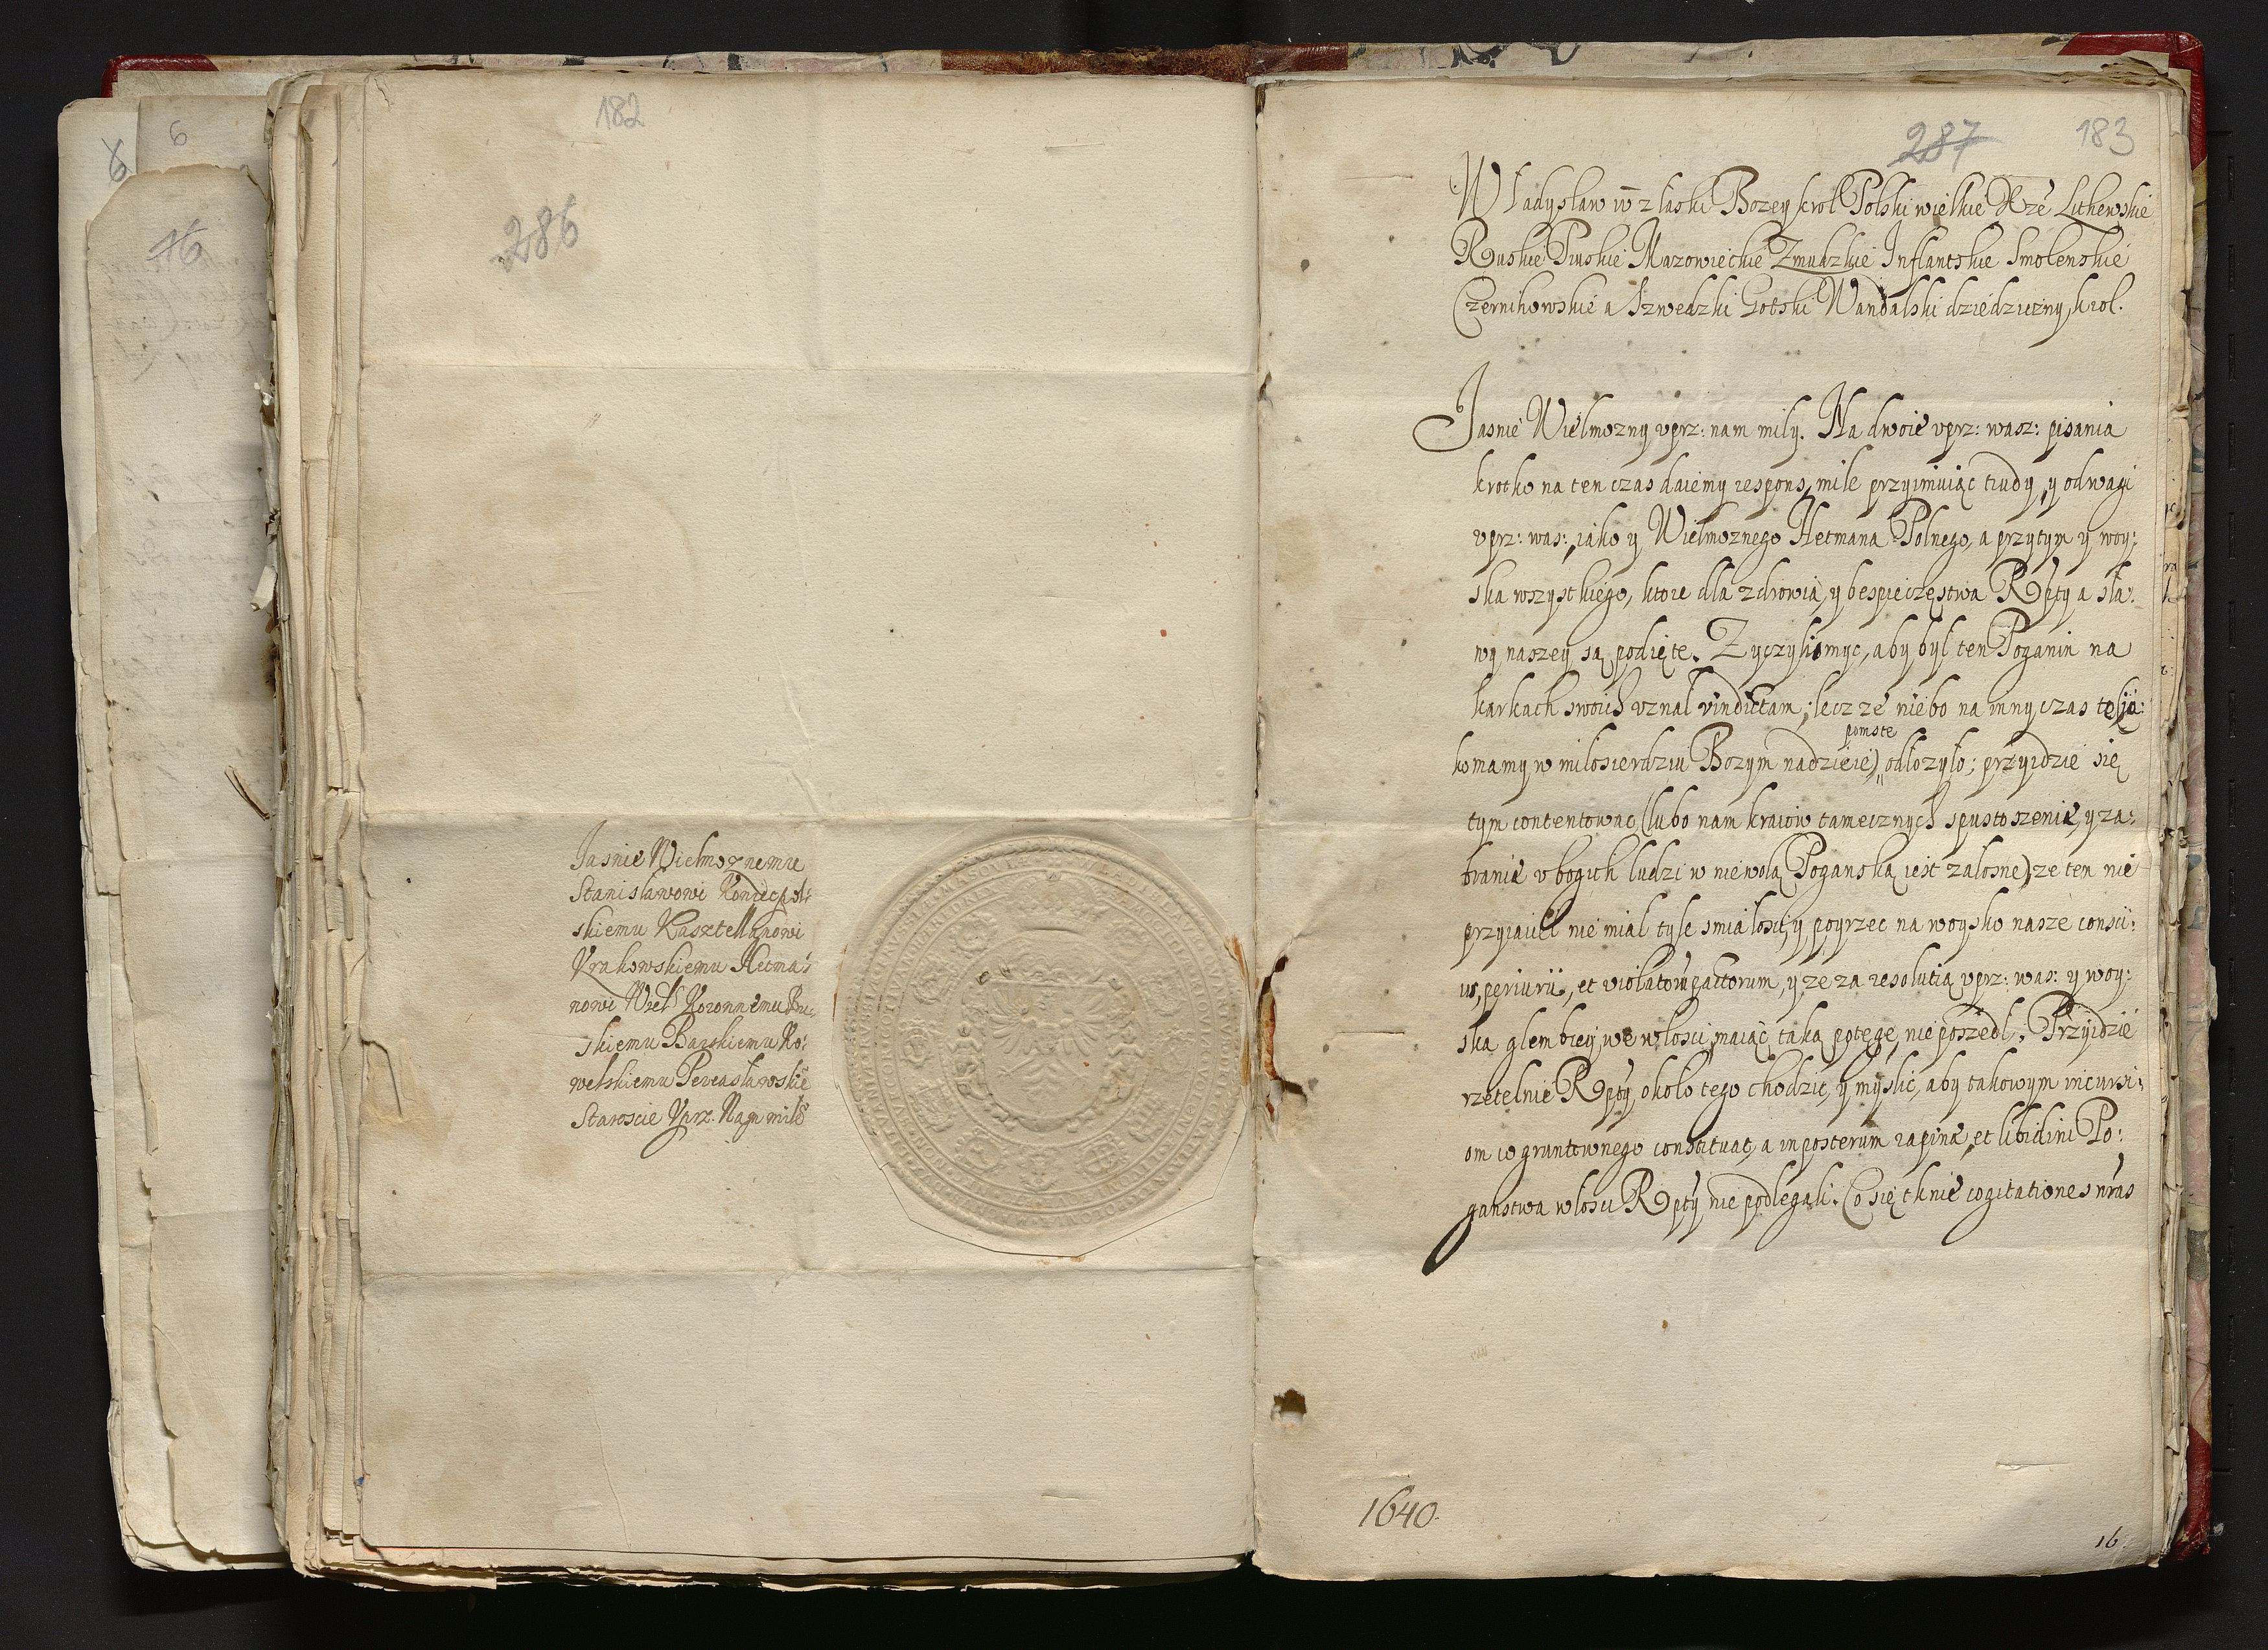 182
286
Jasnie Wielmoznemu
Stanisławowi Koniecpol-
skiemu Kasztellanowi
Krakowskiemu Hetma-
nowi Wiel. Koronnemu Bu-
skiemu Barskiemu Ko-
welskiemu Pereasławskie
Staroscie Uprz. Nam miłe
6
6
76
287
183
Władysław IV z łaski Bozey krol Polski wielkie Xże Lithewskie
Ruskie Pruskie Mazowieckie Zmudzkie Inflantskie Smolenskie
Czernihowskie a Szwedzki Gotski Wandalski dziedziczny krol.
Jasnie Wielmozny uprz: nam miły. Na dwoie uprz: wasz: pisania
krotko na ten czas daiemy respons, mile przyimuiąc trudy, y odwagi
uprz: was: iako y Wielmoznego Hetmana Polnego, a przytym y woy:
ska wszystkiego, ktore dla zdrowia, y bespieczęstwa Rptÿ a sła:
wy naszey są podięte. Zyczylismyc, aby był ten Poganin na
karkach swoich uznał vindictam; lecz ze niebo na inny czas te (ia:
ko mamy w miłosierdziu Bozym nadzieie) pomste odłozyło; przyidzie się
tym contentowac (lubo nam kraiow tamecznych spustoszenie, y za:
branie ubogich ludzi w niewolą Poganską iest załosne) ze ten nie
przyiaciel nie miał tyle smiałosci, y poyrzec na woysko nasze consci:
us, periurii, et violatorum pactorum, y ze za resolutią uprz: was: y woy:
ska głembiey we włosci, maiąc taką potęgę, nie poszedł. Przyidzie
rzetelnie Rptÿ około tego chodzic, y myslic, aby takowym incursi:
om co gruntownego constituat, a in posterum rapinæ, et libidini Po:
ganstwa włosci Rptÿ nie podlegali. Co się tknie cogitationes nras
1640.
16